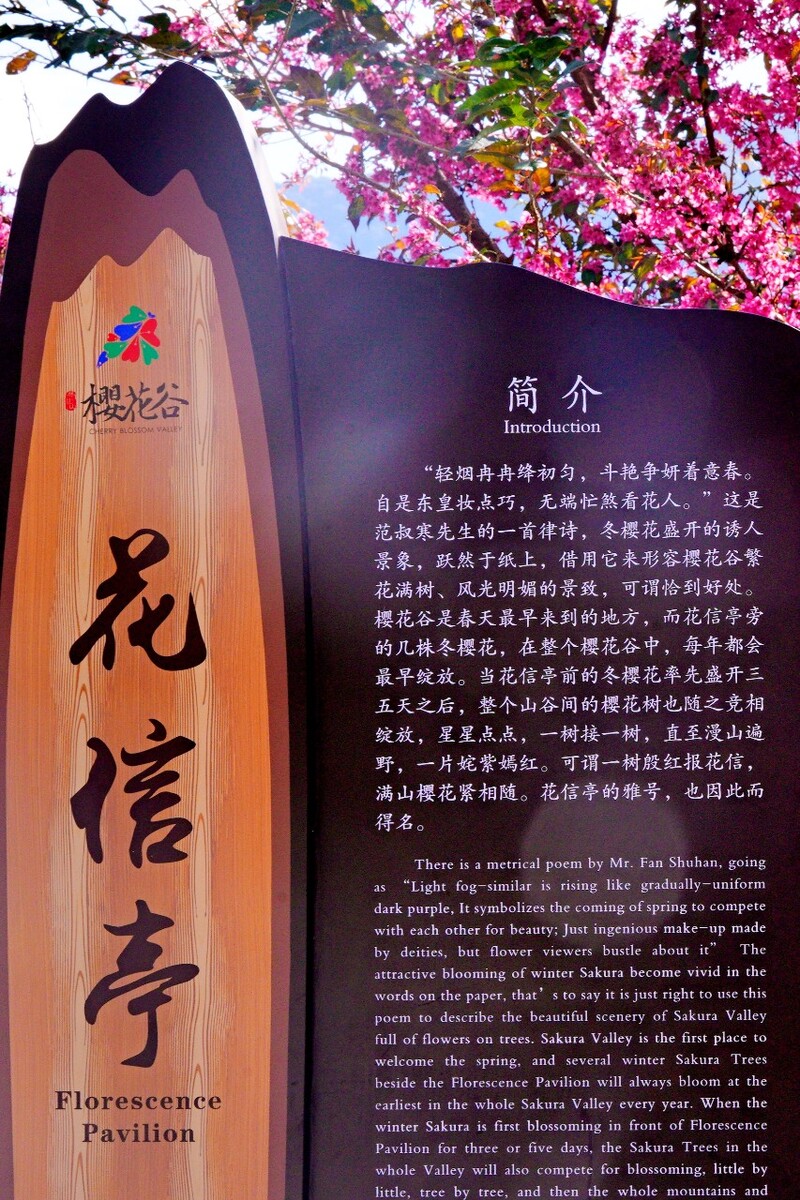 樱花谷
CHERRY BLOSSOM VALLEY
花信亭
Florescence
Pavilion
简 介
Introduction
“轻烟冉冉绛初匀，斗艳争妍着意春。
自是东皇妆点巧，无端忙煞看花人。”这是
范叔寒先生的一首律诗，冬樱花盛开的诱人
景象，跃然于纸上，借用它来形容樱花谷繁
花满树、风光明媚的景致，可谓恰到好处。
樱花谷是春天最早来到的地方，而花信亭旁
的几株冬樱花，在整个樱花谷中，每年都会
最早绽放。当花信亭前的冬樱花率先盛开三
五天之后，整个山谷间的樱花树也随之竞相
绽放，星星点点，一树接一树，直至漫山遍
野，一片姹紫嫣红。可谓一树殷红报花信，
满山樱花紧相随。花信亭的雅号，也因此而
得名。
There is a metrical poem by Mr. Fan Shuhan, going
as “Light fog-similar is rising like gradually-uniform
dark purple, It symbolizes the coming of spring to compete
with each other for beauty; Just ingenious make-up made
by deities, but flower viewers bustle about it” The
attractive blooming of winter Sakura become vivid in the
words on the paper, that’s to say it is just right to use this
poem to describe the beautiful scenery of Sakura Valley
full of flowers on trees. Sakura Valley is the first place to
welcome the spring, and several winter Sakura Trees
beside the Florescence Pavilion will always bloom at the
earliest in the whole Sakura Valley every year. When the
winter Sakura is first blossoming in front of Florescence
Pavilion for three or five days, the Sakura Trees in the
whole Valley will also compete for blossoming, little by
little, tree by tree, and then the whole mountains and